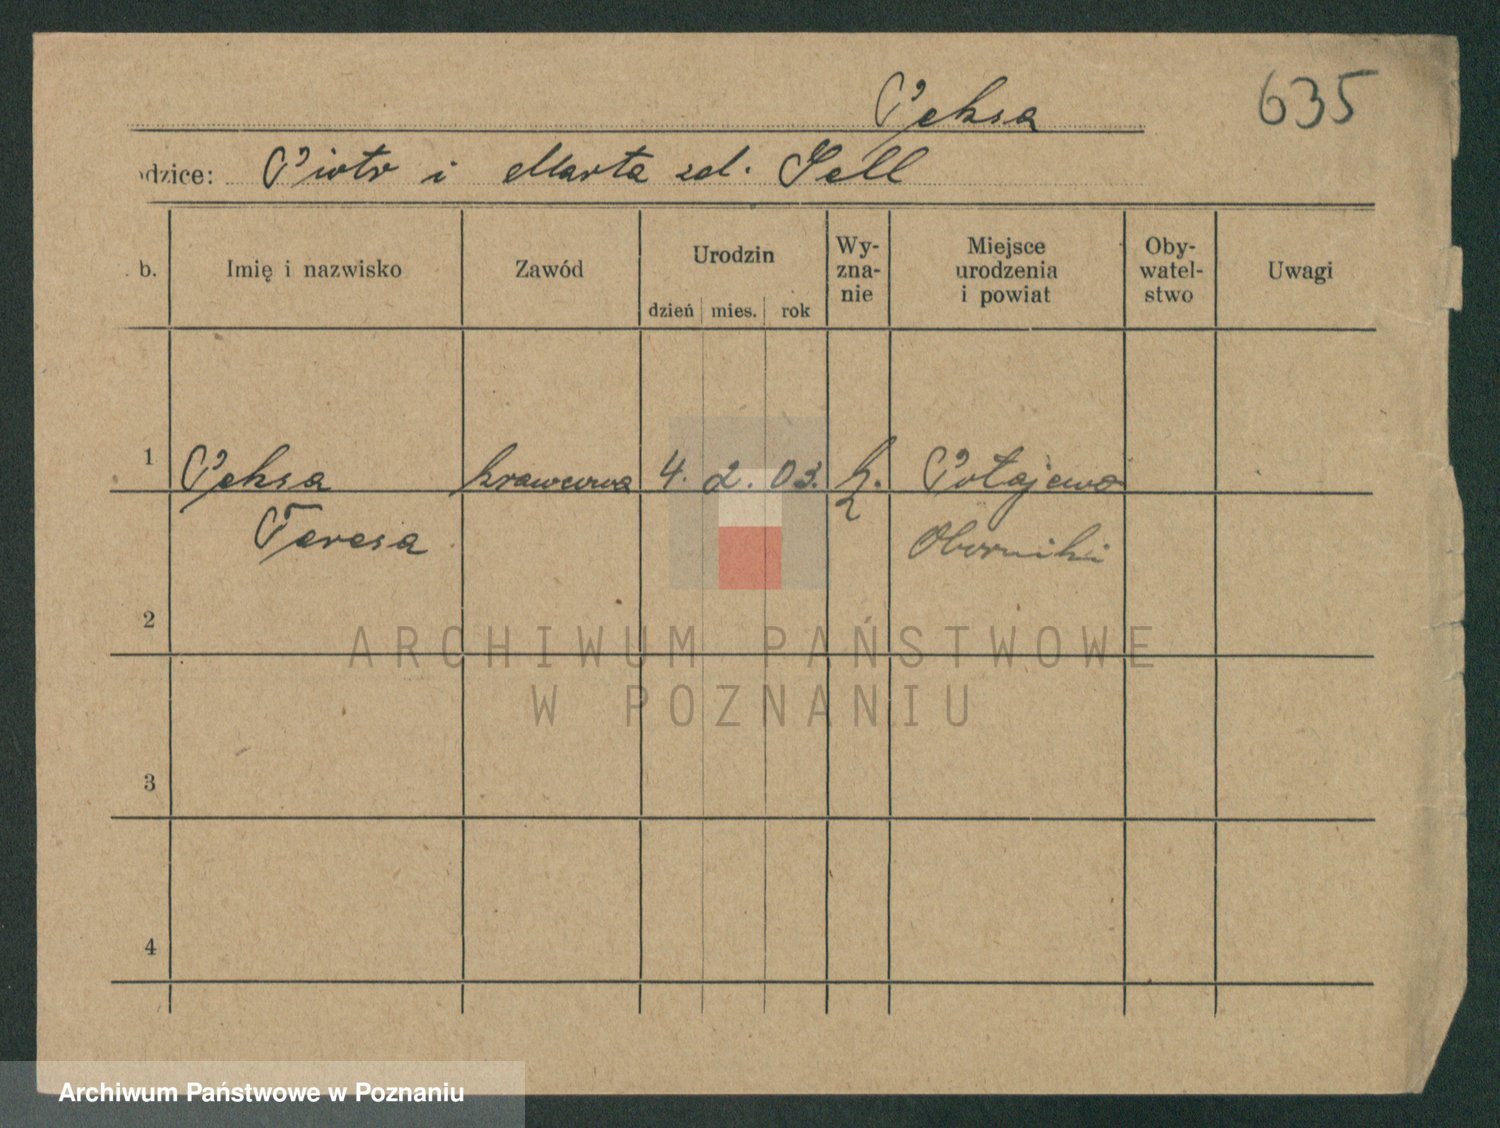 Peksa
635
odzice: Piotr i Marta zd. Sell
b.
Imię i nazwisko
Zawód
Urodzin
dzień mies. rok
Wy-
zna-
nie
Miejsce
urodzenia
i powiat
Oby-
watel-
stwo
Uwagi
1 Peksa krawcowa 4. 2. 03. k. Połajewo
Teresa Oborniki
2
3
4
ARCHIWUM PAŃSTWOWE
W POZNANIU
Archiwum Państwowe w Poznaniu